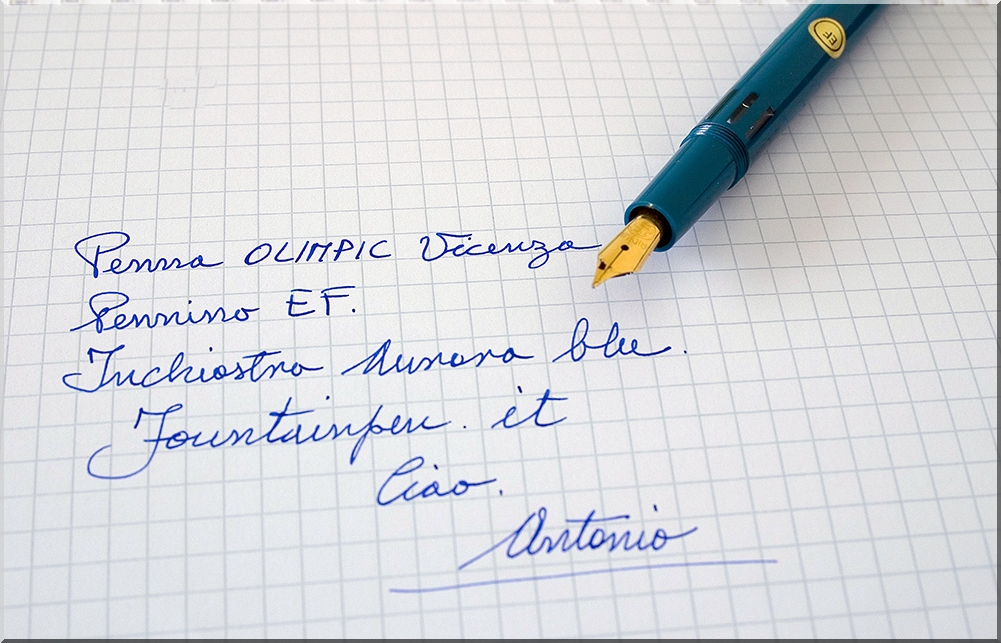 EF
Penna OLIMPIC Vicenza
Pennino EF.
Inchiostro Aurora blu.
Fountainpen.it
Ciao.
Antonio